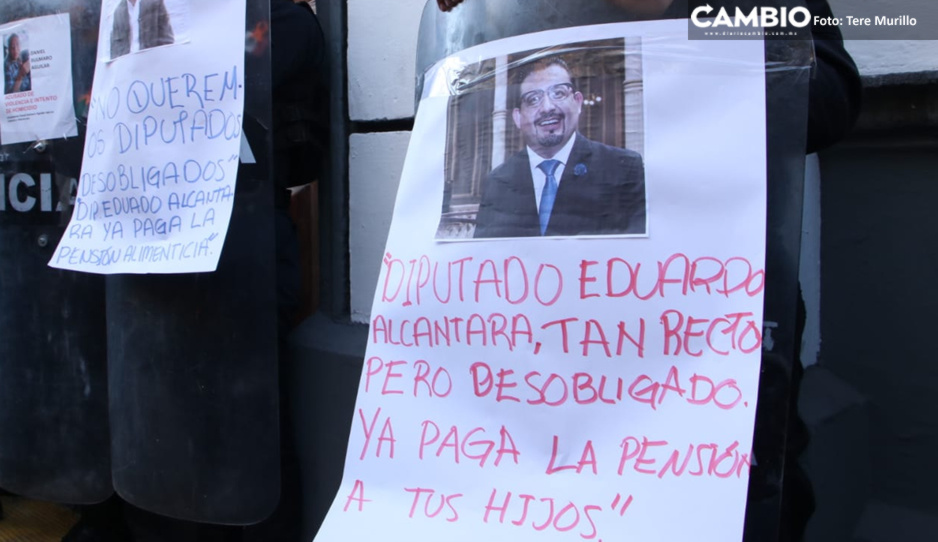 CAMBIO
www.diariocambio.com.mx
Foto: Tere Murillo
DANIEL
AGUILAR
VIOLENCIA E INTENTO
DE HOMICIDIO
"NO QUEREM-
OS DIPUTADOS
DESOBLIGADOS"
DIP. EDUADO ALCANTA-
RA YA PAGA LA
PENSIÓN ALIMENTICIA."
"DIPUTADO EDUARDO
ALCANTARA, TAN RECTO
PERO DESOBLIGADO.
YA PAGA LA PENSIÓN
A TUS HIJOS."